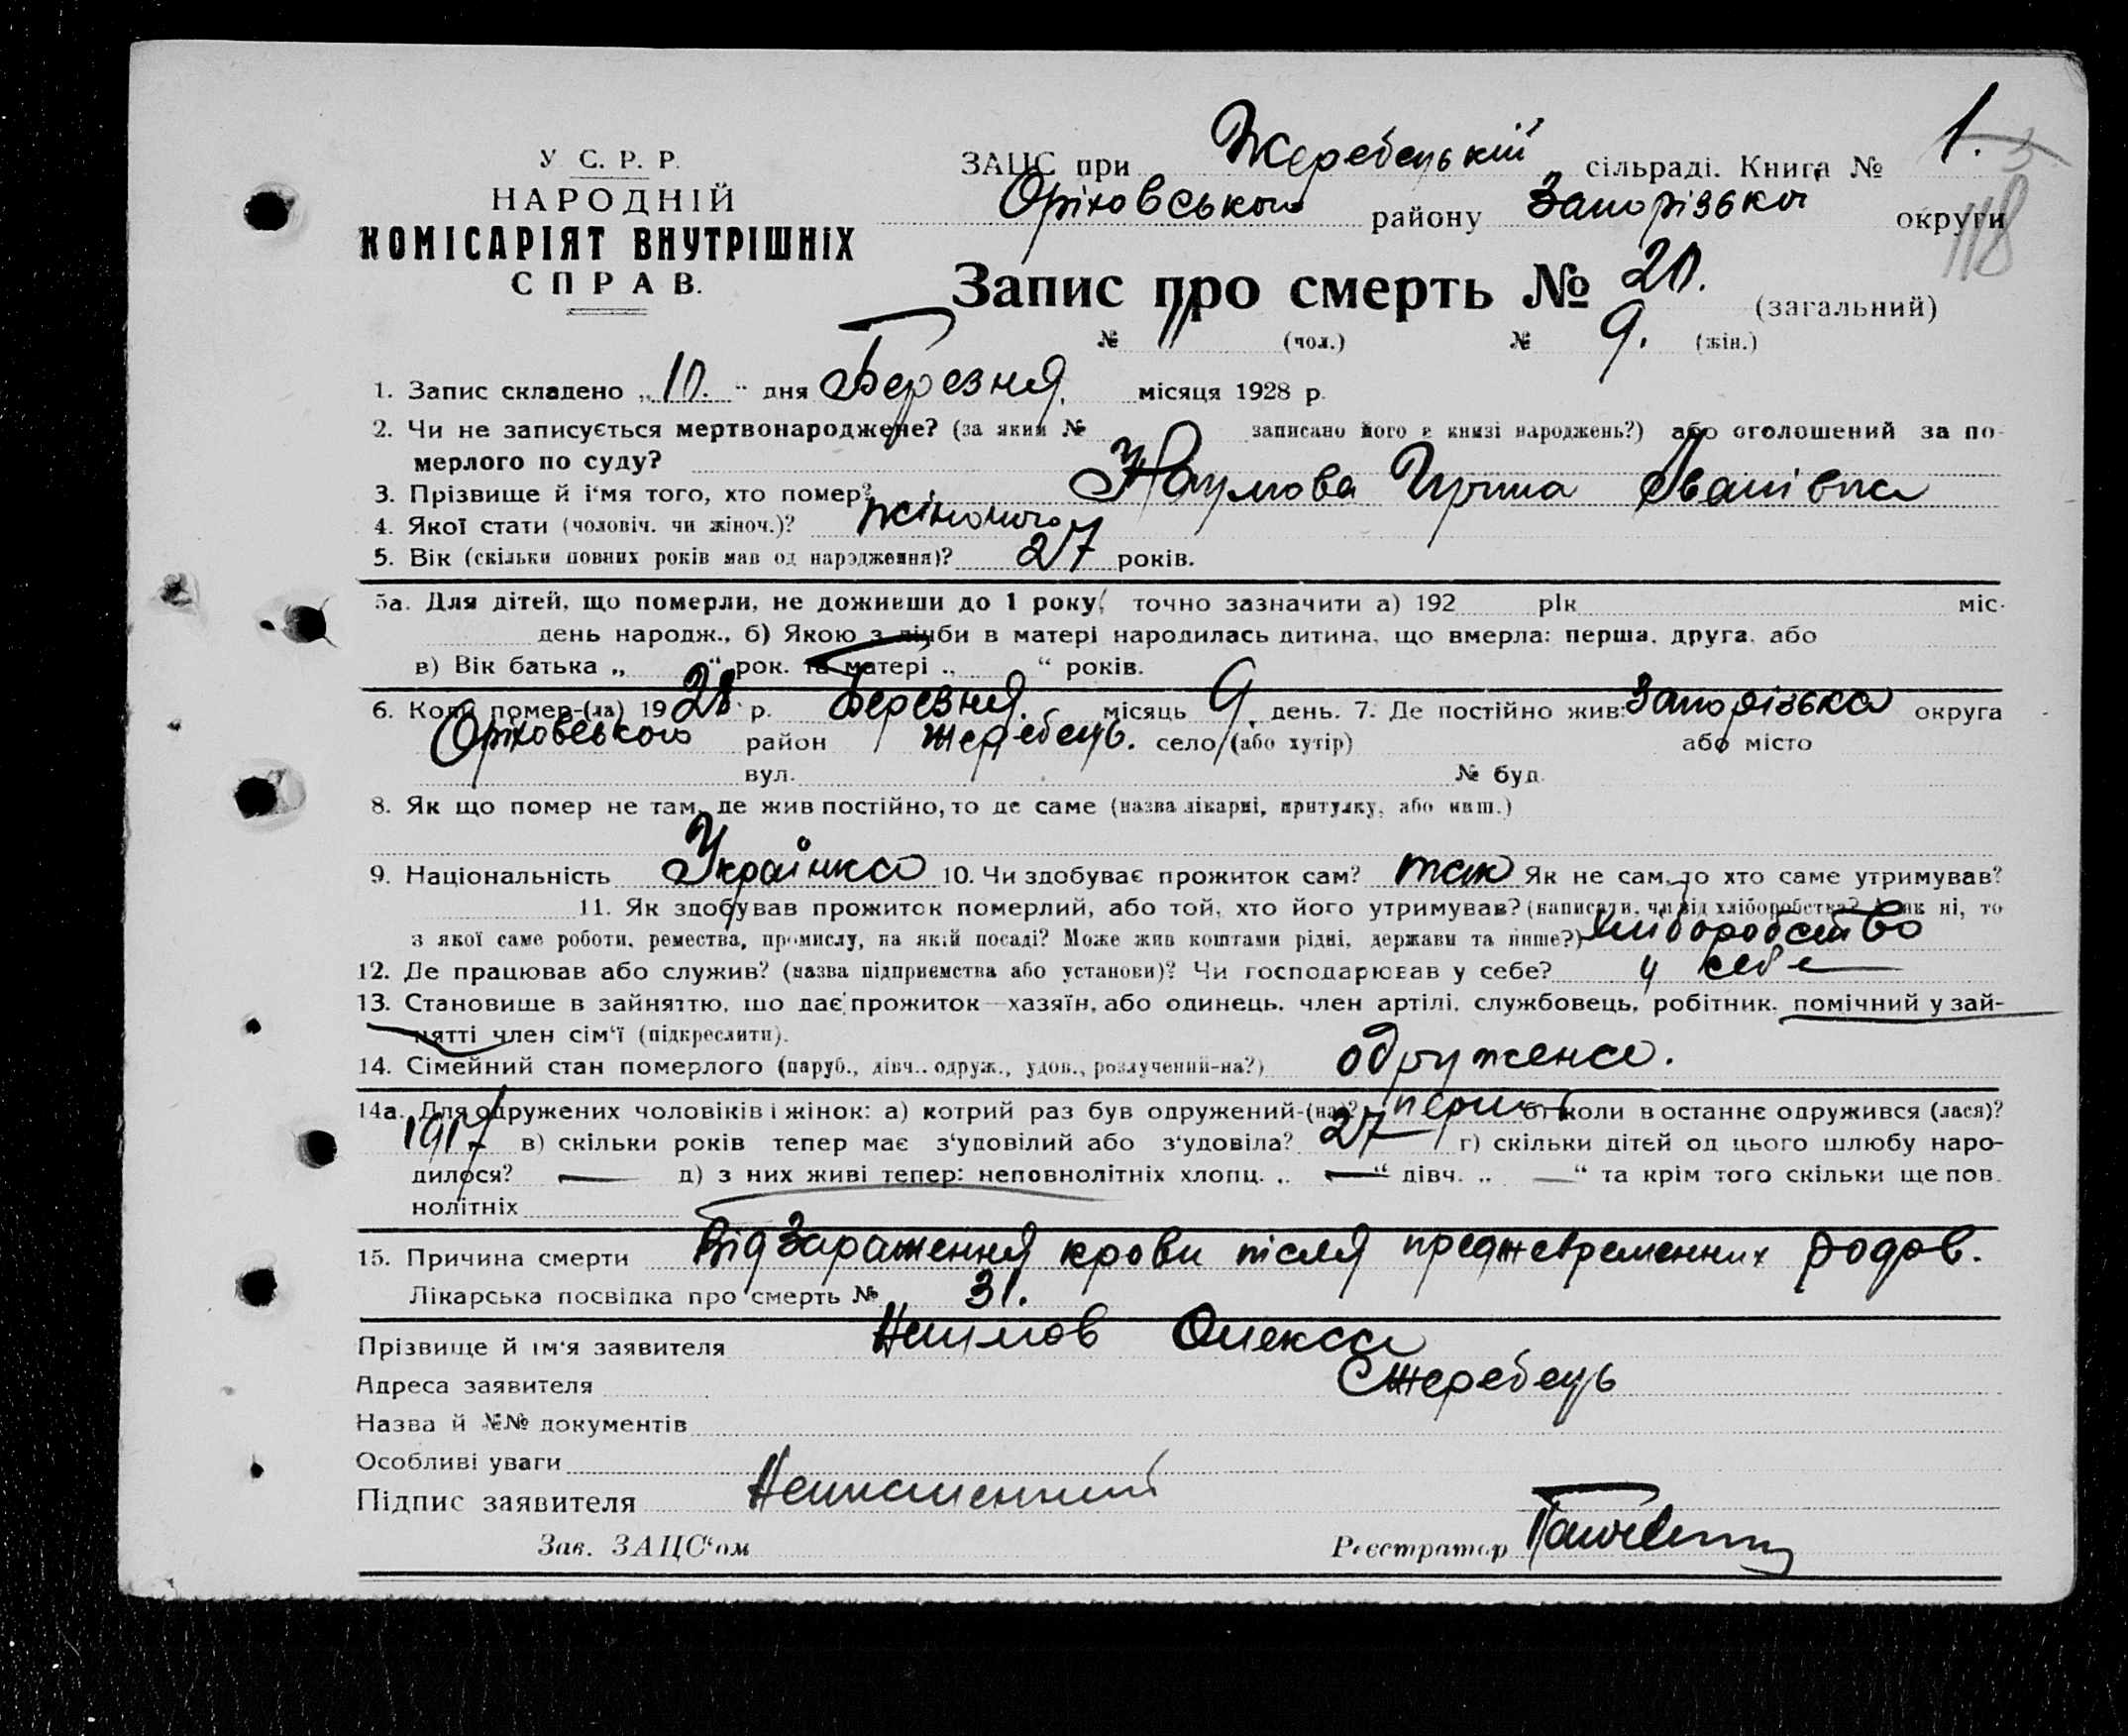 У С. Р. Р.
НАРОДНІЙ
КОМІСАРІЯТ ВНУТРІШНІХ
СПРАВ.
ЗАЦС при Жеребецькій сільраді. Книга № 1.
Оріховського району Запорізької округи
118
Запис про смерть № 20. (загальний)
№ 11 (чол.) № 9. (жін.)
1. Запис складено „10.“ дня Березня. місяця 1928 р.
2. Чи не записується мертвонароджене? (за яким № записано його в книзі народжень?) або оголошений за по-
мерлого по суду?
3. Прізвище й і‘мя того, хто помер? Наумова Ірина Іванівна
4. Якої стати (чоловіч. чи жіноч.)? жіночого
5. Вік (скільки повних років мав од народження)? 27 років.
5а. Для дітей, що померли, не доживши до 1 року, точно зазначити а) 192 рік міс.
день народж., б) Якою з лічби в матері народилась дитина, що вмерла: перша, друга, або
в) Вік батька „ “ рок. та матері „ “ років.
6. Коли помер-(ла) 1928 р. Березня. місяць 9 день. 7. Де постійно жив: Запорізька округа
Оріховського район Жеребець. село (або хутір) або місто
вул. № буд.
8. Як що помер не там, де жив постійно, то де саме (назва лікарні, притулку, або инш.)
9. Національність Українка 10. Чи здобуває прожиток сам? так Як не сам, то хто саме утримував?
11. Як здобував прожиток померлий, або той, хто його утримував? (написати, чи від хліборобства? А як ні, то
з якої саме роботи, ремества, промислу, на якій посаді? Може жив коштами рідні, держави та инше?) хліборобство
12. Де працював або служив? (назва підприємства або установи)? Чи господарював у себе? у себе
13. Становище в зайняттю, що дає прожиток—хазяїн, або одинець, член артілі, службовець, робітник, помічний у зай-
нятті член сім‘ї (підкреслити).
14. Сімейний стан померлого (паруб., дівч., одруж., удов., розлучений-на?) одружена.
14а. Для одружених чоловіків і жінок: а) котрий раз був одружений-(на)? б) коли востаннє одружився (лася)?
1917 в) скільки років тепер має з‘удовілий або з‘удовіла? 27 г) скільки дітей од цього шлюбу наро-
дилося? — д) з них живі тепер: неповнолітніх хлопц. „ —“ дівч. „ —“ та крім того скільки ще пов.
нолітніх
15. Причина смерти Від Зараження крови після преджевременних родов.
Лікарська посвідка про смерть № 31.
Прізвище й ім‘я заявителя Наумов Олекса
Адреса заявителя С Жеребець
Назва й №№ документів
Особливі уваги
Підпис заявителя Неписьменний
Зав. ЗАЦС‘ом Реєстратор